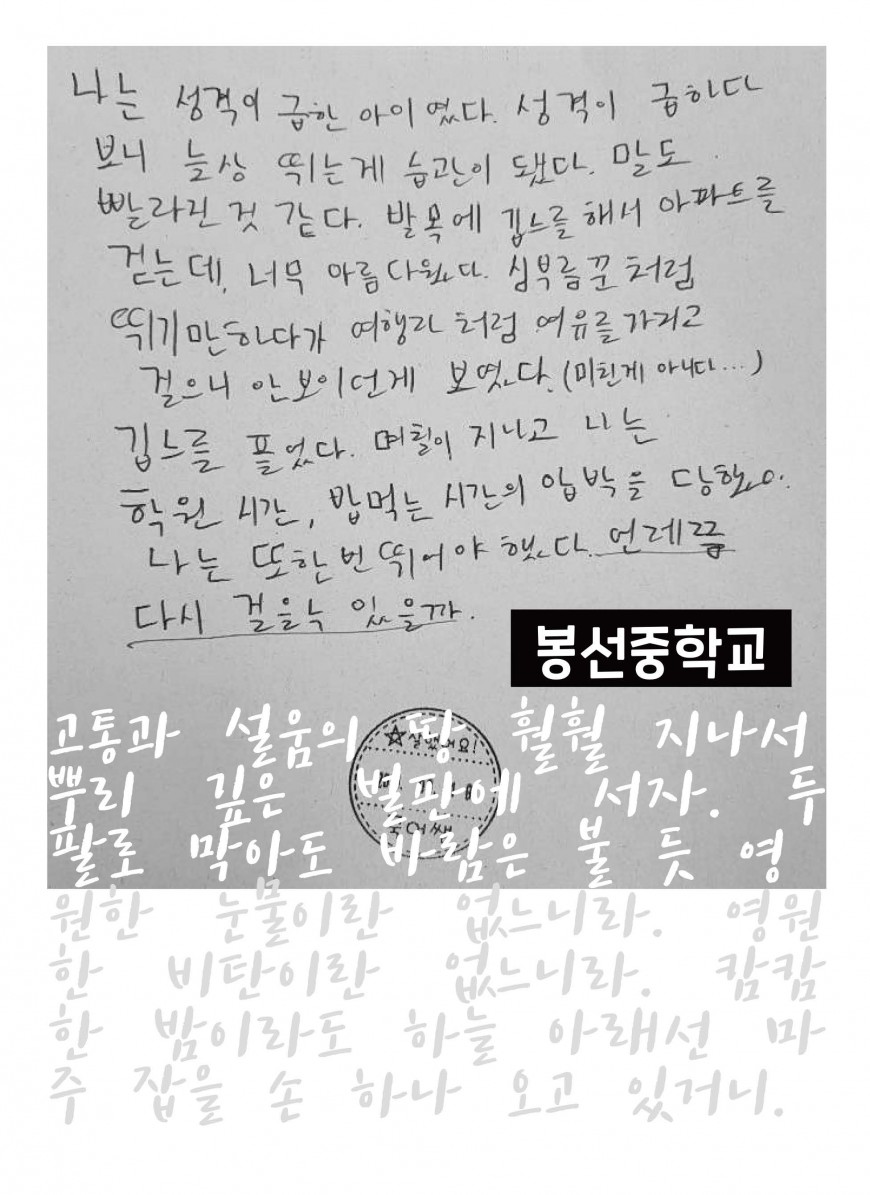 나는 성격이 급한 아이였다. 성격이 급하다
보니 늘상 뛰는게 습관이 됐다. 말도
빨라진 것 같다. 발목에 깁스를 해서 아파트를
걷는데, 너무 아름다웠다. 심부름꾼처럼
뛰기만하다가 여행자처럼 여유를 가지고
걸으니 안보이던게 보였다. (미친게 아니다...)
깁스를 풀었다. 며칠이 지나고 나는
학원 시간, 밥먹는 시간의 압박을 당했다.
나는 또한번 뛰어야 했다. 언제쯤
다시 걸을수 있을까.
봉선중학교
고통과 설움의 땅 훨훨 지나서
뿌리 깊은 벌판에 서자. 두
팔로 막아도 바람은 불 듯 영
원한 눈물이란 없느니라. 영원
한 비탄이란 없느니라. 캄캄
한 밤이라도 하늘 아래선 마
주 잡을 손 하나 오고 있거니.